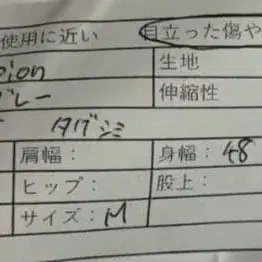 使用に近い 目立った傷や
pion 生地
グレー 伸縮性
タグシミ
肩幅： 身幅：48
ヒップ： 股上：
サイズ：M